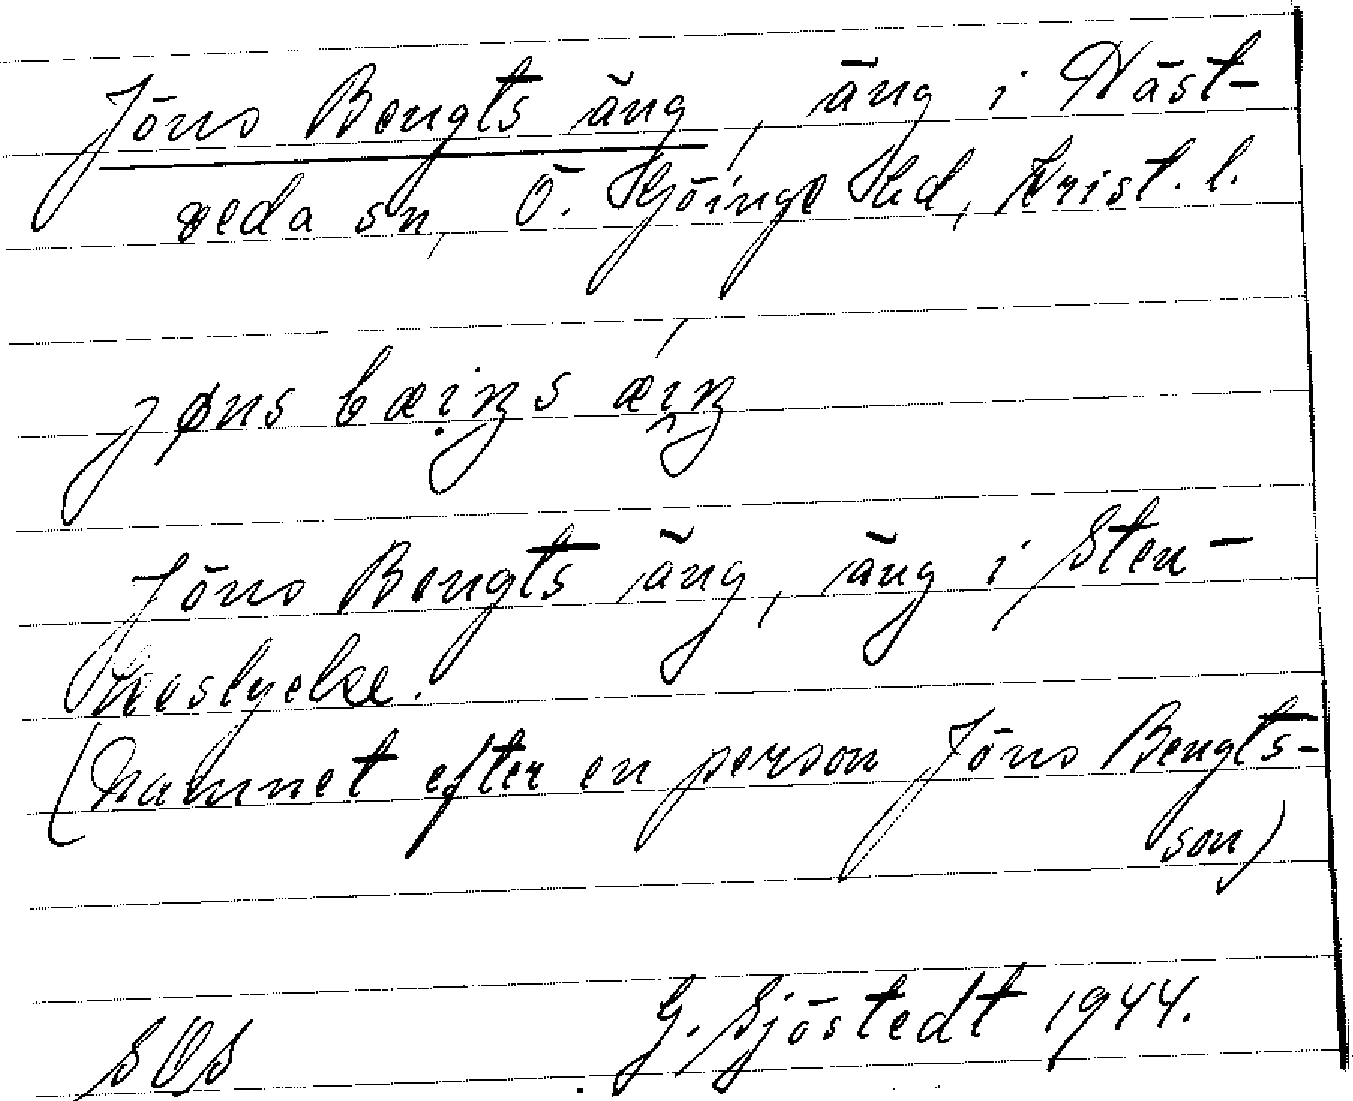 Jöns Bengts äng, äng i Näst-
veda sn, Ö. Göinge Hd, Krist. l.
jøns bæi̭ŋs æi̭ŋ
Jöns Bengts äng, äng i Sten-
(namnet efter en person Jöns Bengts-
son)
SOS G. Sjöstedt 1944.